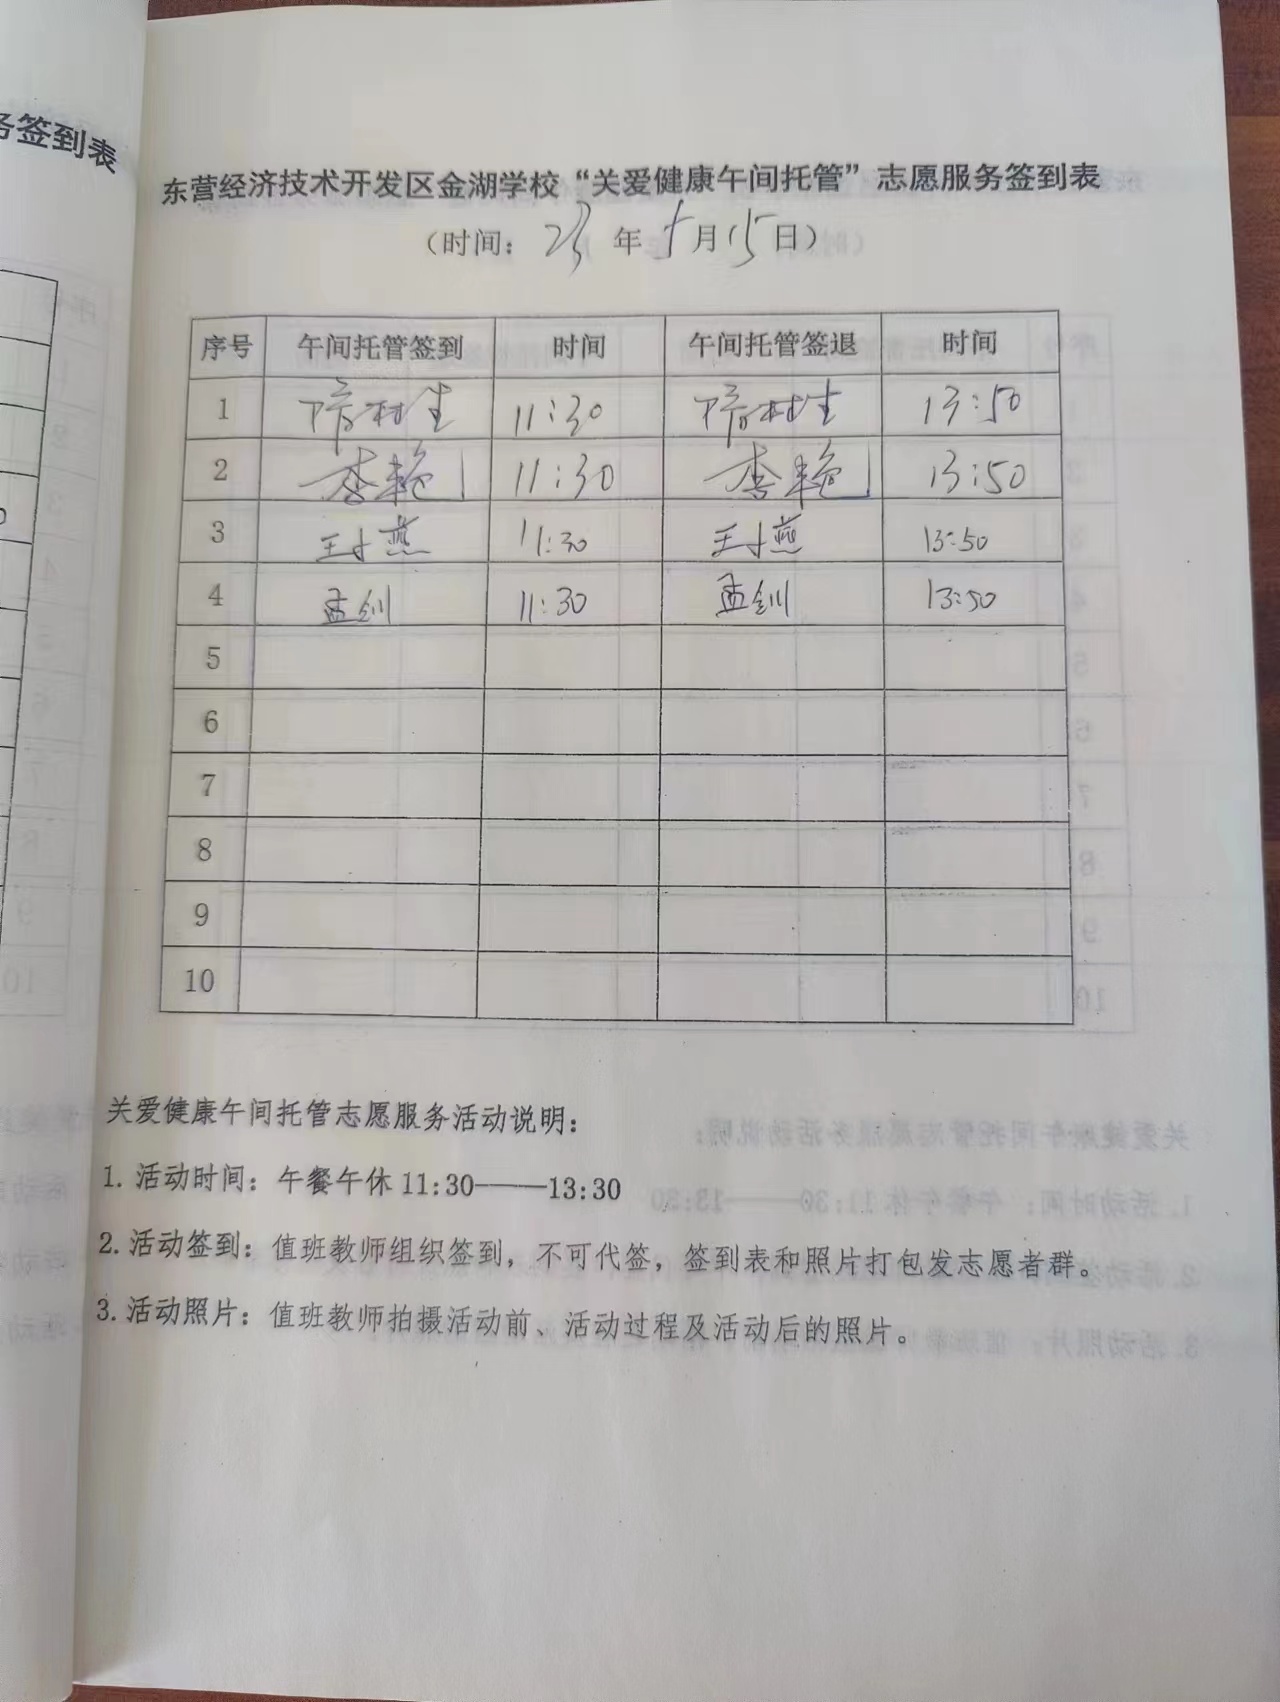 务签到表
东营经济技术开发区金湖学校“关爱健康午间托管”志愿服务签到表
（时间：23年5月15日）
序号 午间托管签到 时间 午间托管签退 时间
1 11:30 13:50
2 李艳 11:30 李艳 13:50
3 王小燕 11:30 王小燕 13:50
4 孟钏 11:30 孟钏 13:50
5
6
7
8
9
10
关爱健康午间托管志愿服务活动说明：
1. 活动时间：午餐午休 11:30——13:30
2. 活动签到：值班教师组织签到，不可代签，签到表和照片打包发志愿者群。
3. 活动照片：值班教师拍摄活动前、活动过程及活动后的照片。